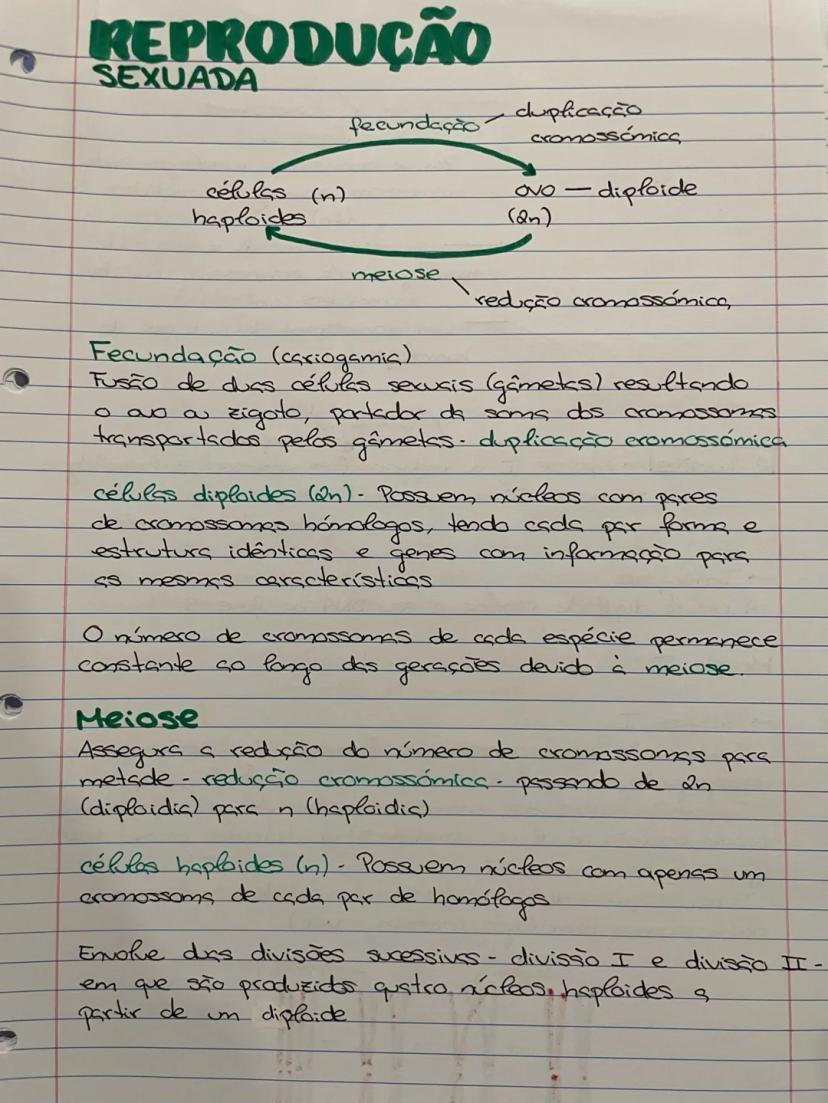 REPRODUÇÃO
SEXUADA
fecundação - duplicação
cromossómica
células (n)
haploides
ovo - diploide
(2n)
meiose
redução cromossómica
Fecundação (cariogamia)
Fusão de duas células sexuais (gâmetas) resultando
o ovo ou zigoto, portador da soma dos cromossomas
transportados pelos gâmetas - duplicação cromossómica
células diploides (2n) - Possuem núcleos com pares
de cromossomas hómologos, tendo cada par forma e
estrutura idênticas e genes com informação para
as mesmas características
O número de cromossomas de cada espécie permanece
constante ao longo das gerações devido à meiose.
Meiose
Assegura a redução do número de cromossomas para
metade - redução cromossómica - passando de 2n
(diploidia) para n (haploidia)
células haploides (n) - Possuem núcleos com apenas um
cromossoma de cada par de homólogos
Envolve duas divisões sucessivas - divisão I e divisão II -
em que são produzidos quatro núcleos haploides a
partir de um diploide